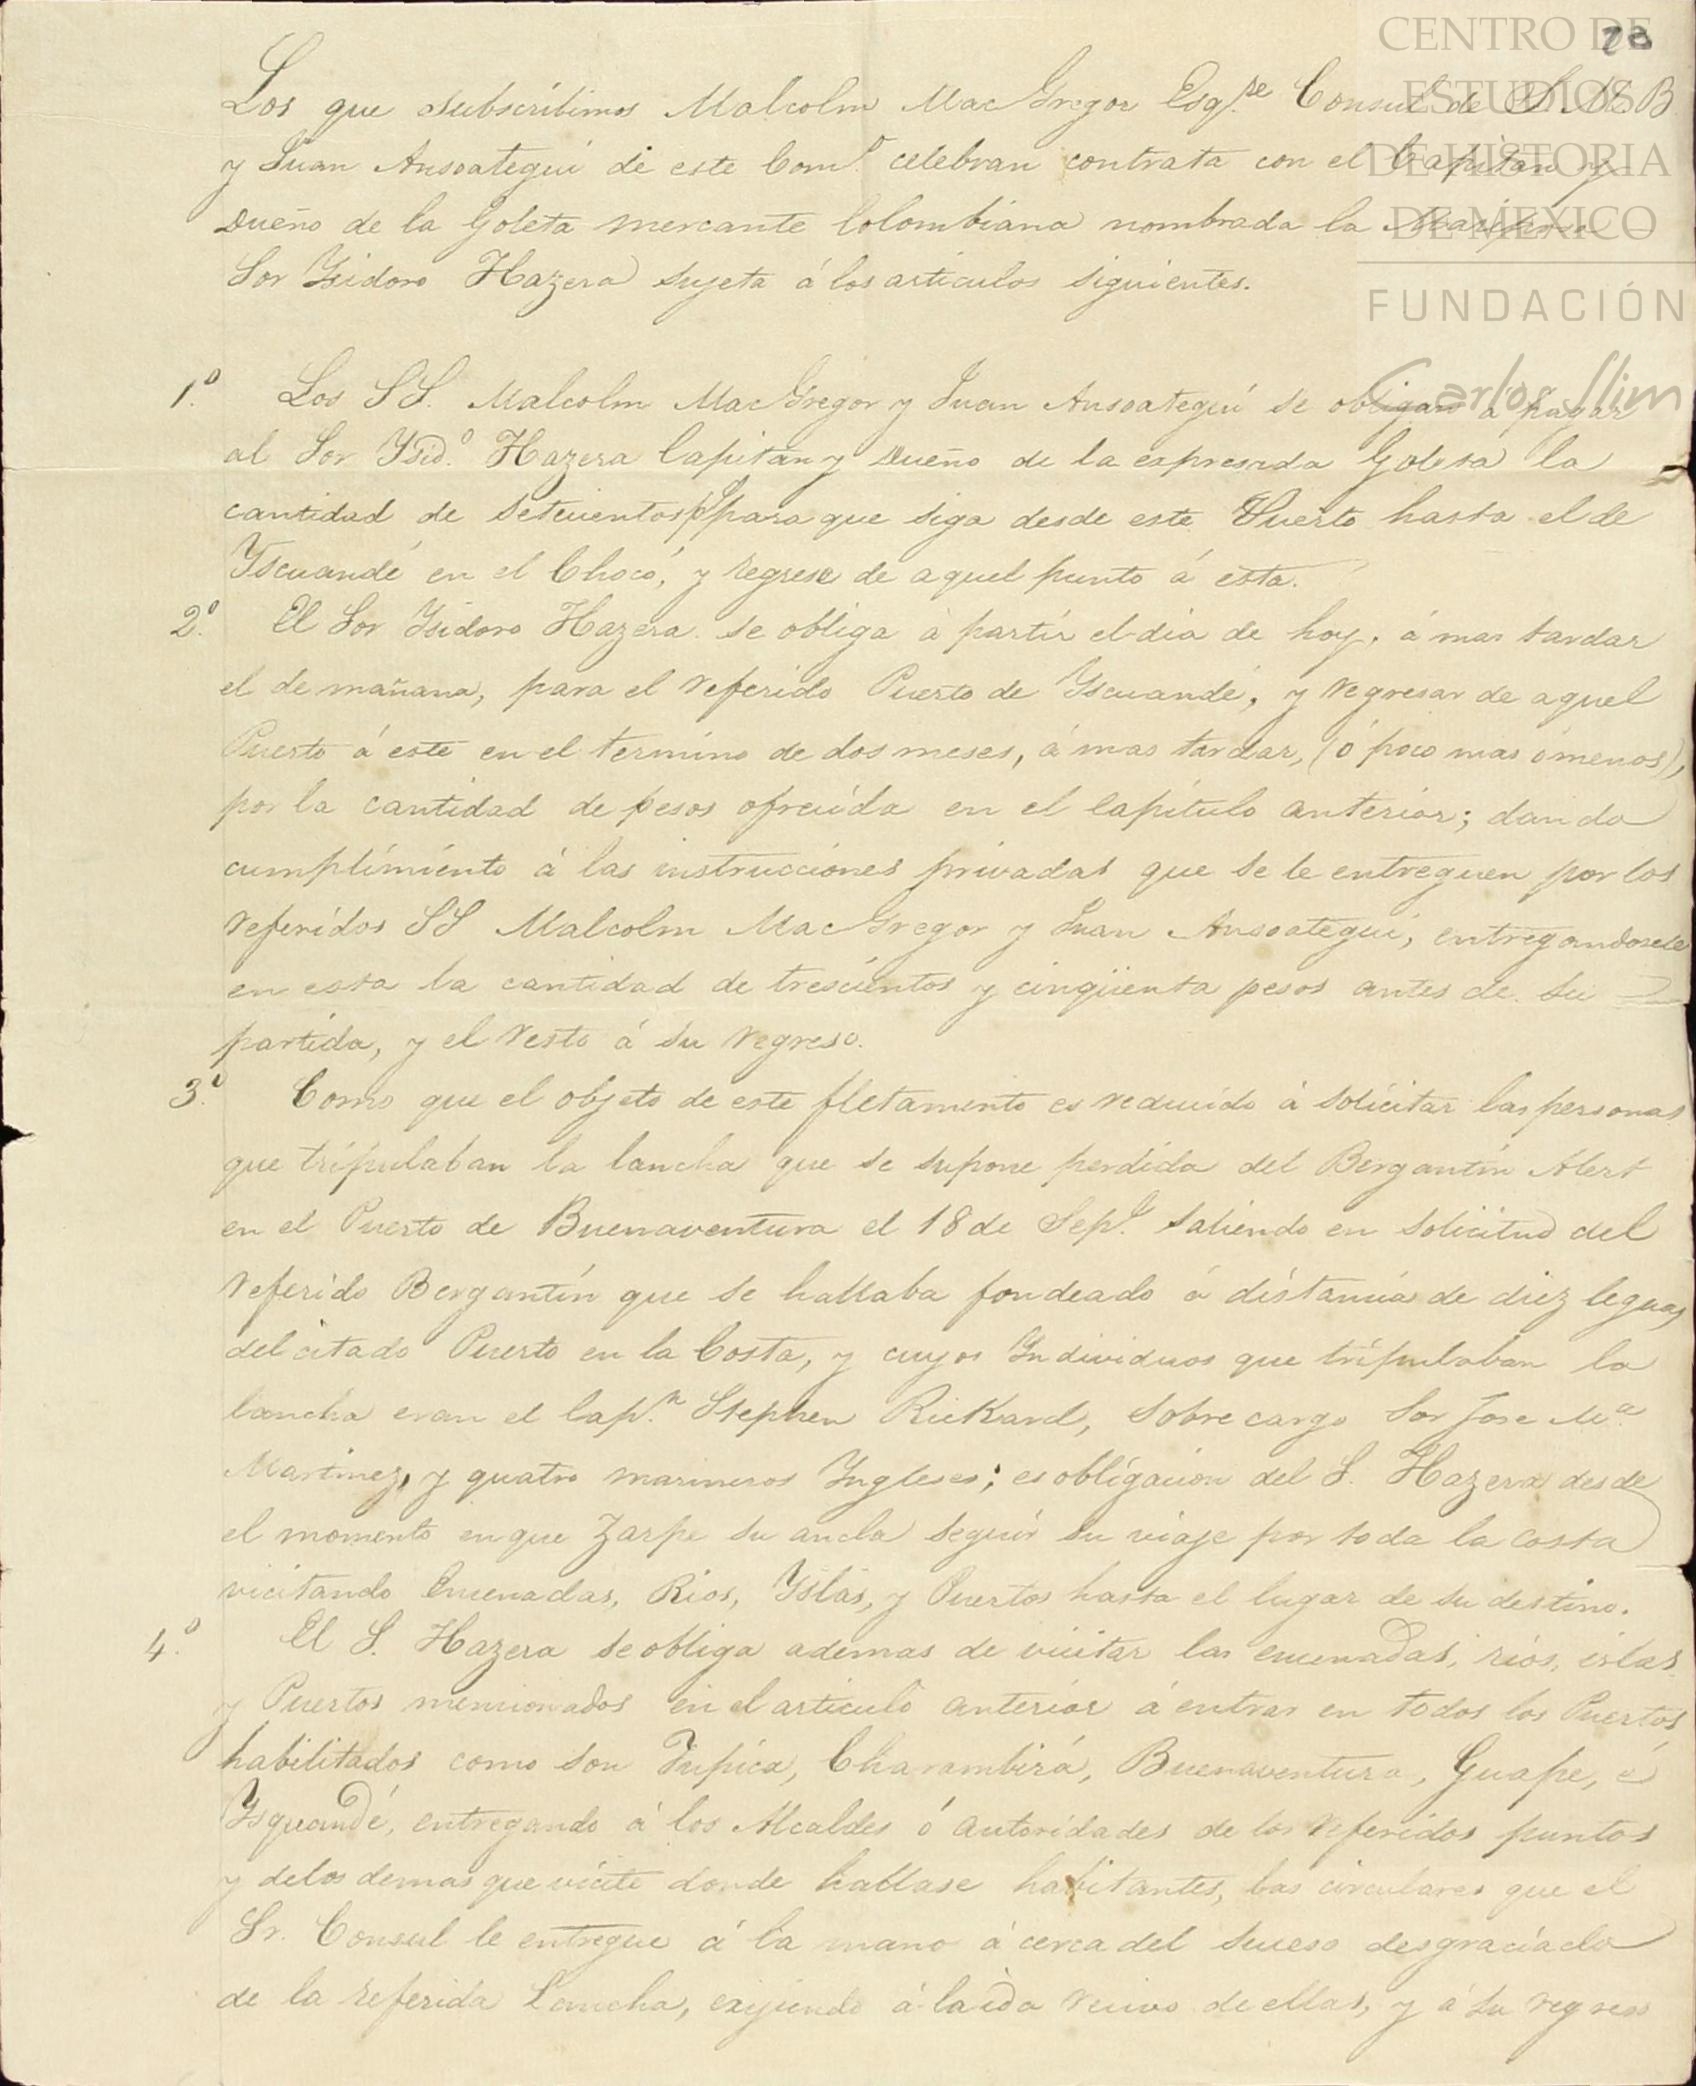 28
CENTRO DE
ESTUDIOS
DE HISTORIA
DE MEXICO
FUNDACIÓN
Carlos Slim
Los que subscribimos Malcolm MacGregor Esq.re Consul de S. M. B
y Juan Ansoategui de este Com.o celebran contrata con el Capitan y
Dueño de la Goleta mercante Colombiana nombrada la
Sor Ysidoro Hazera sujeta á los articulos siguientes.
1.o Los SS. Malcolm MacGregor y Juan Ansoategui se obligan a pagar
al Sor Ysid.o Hazera Capitan y Dueño de la expresada Goleta la
cantidad de setecientos p.s para que siga desde este Puerto hasta el de
Yscuandé en el Chocó, y regrese de aquel punto á esta.
2.o El Sor Ysidoro Hazera se obliga á partir el dia de hoy, á mas tardar
el de mañana, para el referido Puerto de Yscuandé, y regresar de aquel
Puerto á este en el termino de dos meses, á mas tardar, (ó poco mas ó menos),
por la cantidad de pesos ofrecida en el Capitulo anterior; dando
cumplimiento á las instrucciones privadas que se le entreguen por los
referidos SS Malcolm MacGregor y Juan Ansoategui, entregandosele
en esta la cantidad de trescientos y cinqüenta pesos antes de su
partida, y el resto á su regreso.
3.o Como que el objeto de este fletamento es reducido á solicitar las personas
que tripulaban la lancha que se supone perdida del Bergantin Alert
en el Puerto de Buenaventura el 18 de Sep.e saliendo en solicitud del
referido Bergantin que se hallaba fondeado á distancia de diez leguas
del citado Puerto en la Costa, y cuyos Individuos que tripulaban la
lancha eran el Cap.n Stephen Rickard, Sobrecargo Sor Jose M.a
Martinez, y quatro marineros Yngleses; es obligacion del S. Hazera desde
el momento en que zarpe su ancla seguir su viaje por toda la costa
vicitando Encenadas, Rios, Yslas, y Puertos hasta el lugar de su destino.
4.o El S. Hazera se obliga ademas de vicitar las encenadas, rios, islas
y Puertos mencionados en el articulo anterior á entrar en todos los Puertos
habilitados como son Cupica, Charambirá, Buenaventura, Guape, é
Ysquandé, entregando á los Alcaldes ó autoridades de los referidos puntos
y delos demas que vicite donde hallase habitantes, las circulares que el
Sr. Consul le entregue á la mano á cerca del suceso desgraciado
de la referida Lancha, exijiendo á la ida recivo de ellas, y á su regreso